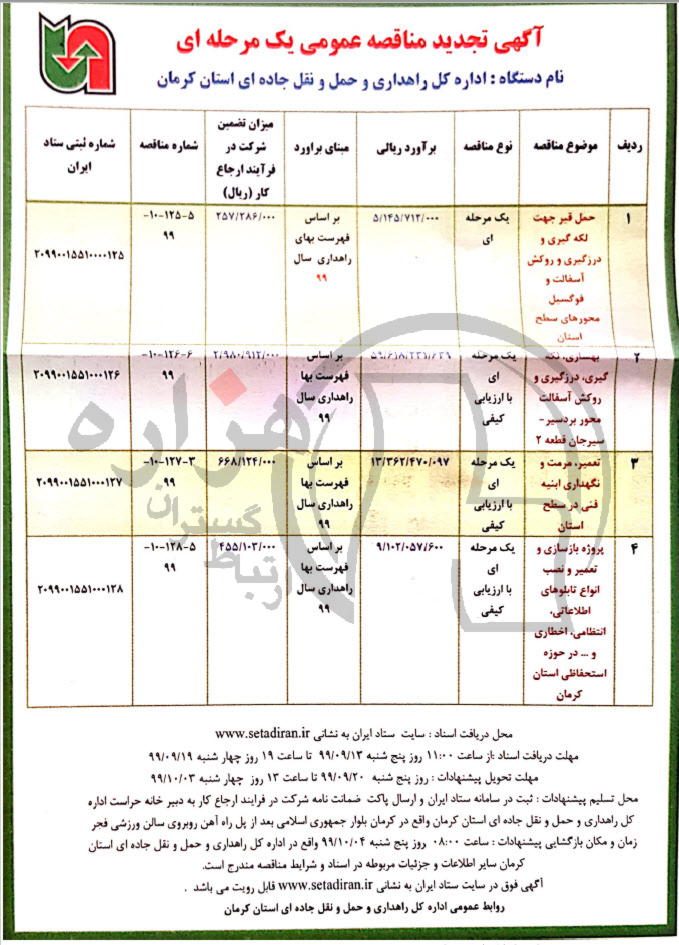 آگهی تجدید مناقصه عمومی یک مرحله ای
نام دستگاه : اداره کل راهداری و حمل و نقل جاده ای استان کرمان
ردیف
موضوع مناقصه
نوع مناقصه
برآورد ریالی
مبنای براورد
میزان تضمین
شرکت در
فرآیند ارجاع
کار (ریال)
شماره مناقصه
شماره ثبتی ستاد
ایران
۱
حمل قیر جهت
لکه گیری و
درزگیری و روکش
آسفالت و
فوگسیل
محورهای سطح
استان
یک مرحله
ای
۵/۱۴۵/۷۱۲/۰۰۰
بر اساس
فهرست بهای
راهداری سال
۹۹
۲۵۷/۲۸۶/۰۰۰
۱۰-۱۲۵-۵-
۹۹
۲۰۹۹۰۰۱۵۵۱۰۰۰۰۱۲۵
۲
بهسازی، لکه
گیری، درزگیری و
روکش آسفالت
محور بردسیر –
سیرجان قطعه ۲
یک مرحله
ای
با ارزیابی
کیفی
بر اساس
فهرست بها
راهداری سال
۹۹
۲/۹۸۰/۹۱۲/۰۰۰
۱۰-۱۲۶-۶-
۹۹
۲۰۹۹۰۰۱۵۵۱۰۰۰۱۲۶
۳
تعمیر، مرمت و
نگهداری ابنیه
فنی در سطح
استان
یک مرحله
ای
با ارزیابی
کیفی
۱۳/۳۶۲/۴۷۰/۰۹۷
بر اساس
فهرست بها
راهداری سال
۹۹
۶۶۸/۱۲۴/۰۰۰
۱۰-۱۲۷-۳-
۹۹
۲۰۹۹۰۰۱۵۵۱۰۰۰۱۲۷
۴
پروژه بازسازی و
تعمیر و نصب
انواع تابلوهای
اطلاعاتی،
انتظامی، اخطاری
و ... در حوزه
استحفاظی استان
کرمان
یک مرحله
ای
با ارزیابی
کیفی
۹/۱۰۲/۰۵۷/۶۰۰
بر اساس
فهرست بها
راهداری سال
۹۹
۴۵۵/۱۰۳/۰۰۰
۱۰-۱۲۸-۵-
۹۹
۲۰۹۹۰۰۱۵۵۱۰۰۰۱۲۸
هزاره
گستران
ارتباط
محل دریافت اسناد : سایت ستاد ایران به نشانی www.setadiran.ir
مهلت دریافت اسناد :از ساعت ۱۱:۰۰ روز پنج شنبه ۹۹/۰۹/۱۳ تا ساعت ۱۹ روز چهار شنبه ۹۹/۰۹/۱۹
مهلت تحویل پیشنهادات : روز پنج شنبه ۹۹/۰۹/۲۰ تا ساعت ۱۳ روز چهار شنبه ۹۹/۱۰/۰۳
محل تسلیم پیشنهادات : ثبت در سامانه ستاد ایران و ارسال پاکت ضمانت نامه شرکت در فرایند ارجاع کار به دبیر خانه حراست اداره
کل راهداری و حمل و نقل جاده ای استان کرمان واقع در کرمان بلوار جمهوری اسلامی بعد از پل راه آهن روبروی سالن ورزشی فجر
زمان و مکان بازگشایی پیشنهادات : ساعت ۰۸:۰۰ روز پنج شنبه ۹۹/۱۰/۰۴ واقع در اداره کل راهداری و حمل و نقل جاده ای استان
کرمان سایر اطلاعات و جزئیات مربوطه در اسناد و شرایط مناقصه مندرج است.
آگهی فوق در سایت ستاد ایران به نشانی www.setadiran.ir قابل رویت می باشد .
روابط عمومی اداره کل راهداری و حمل و نقل جاده ای استان کرمان